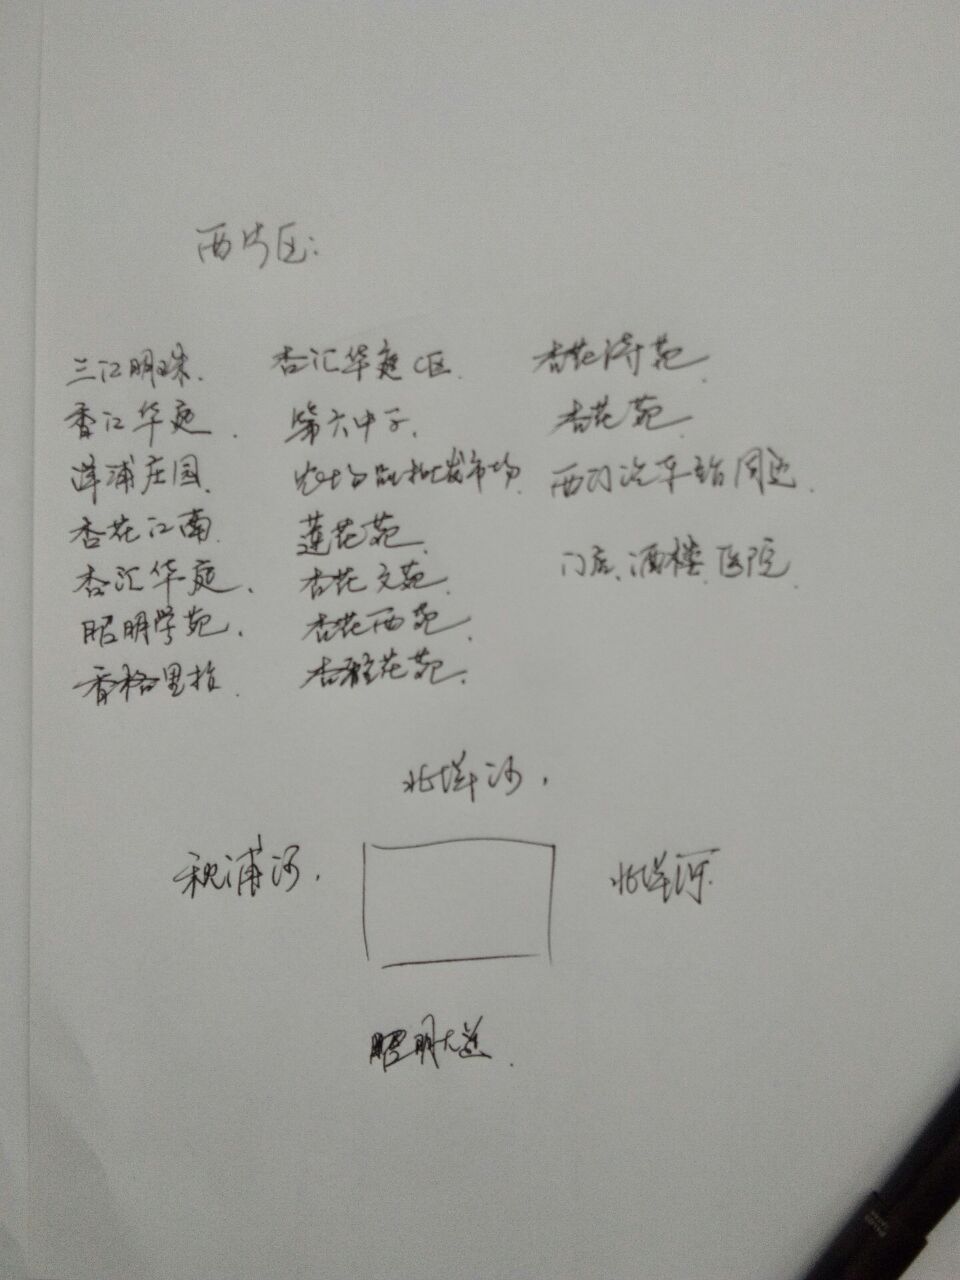 西片区:
三江明珠.
香江华庭.
洋浦庄园.
杏花江南.
杏汇华庭.
昭明学苑.
香格里拉.
杏汇华庭C区.
第六中学.
农场品批发市场.
莲花苑.
杏花文苑.
杏花西苑.
杏雅花苑.
杏花诗苑.
杏花苑.
西门汽车站周边.
门店、酒楼、医院.
北洋河.
秋浦河.
北洋河.
昭明大道.